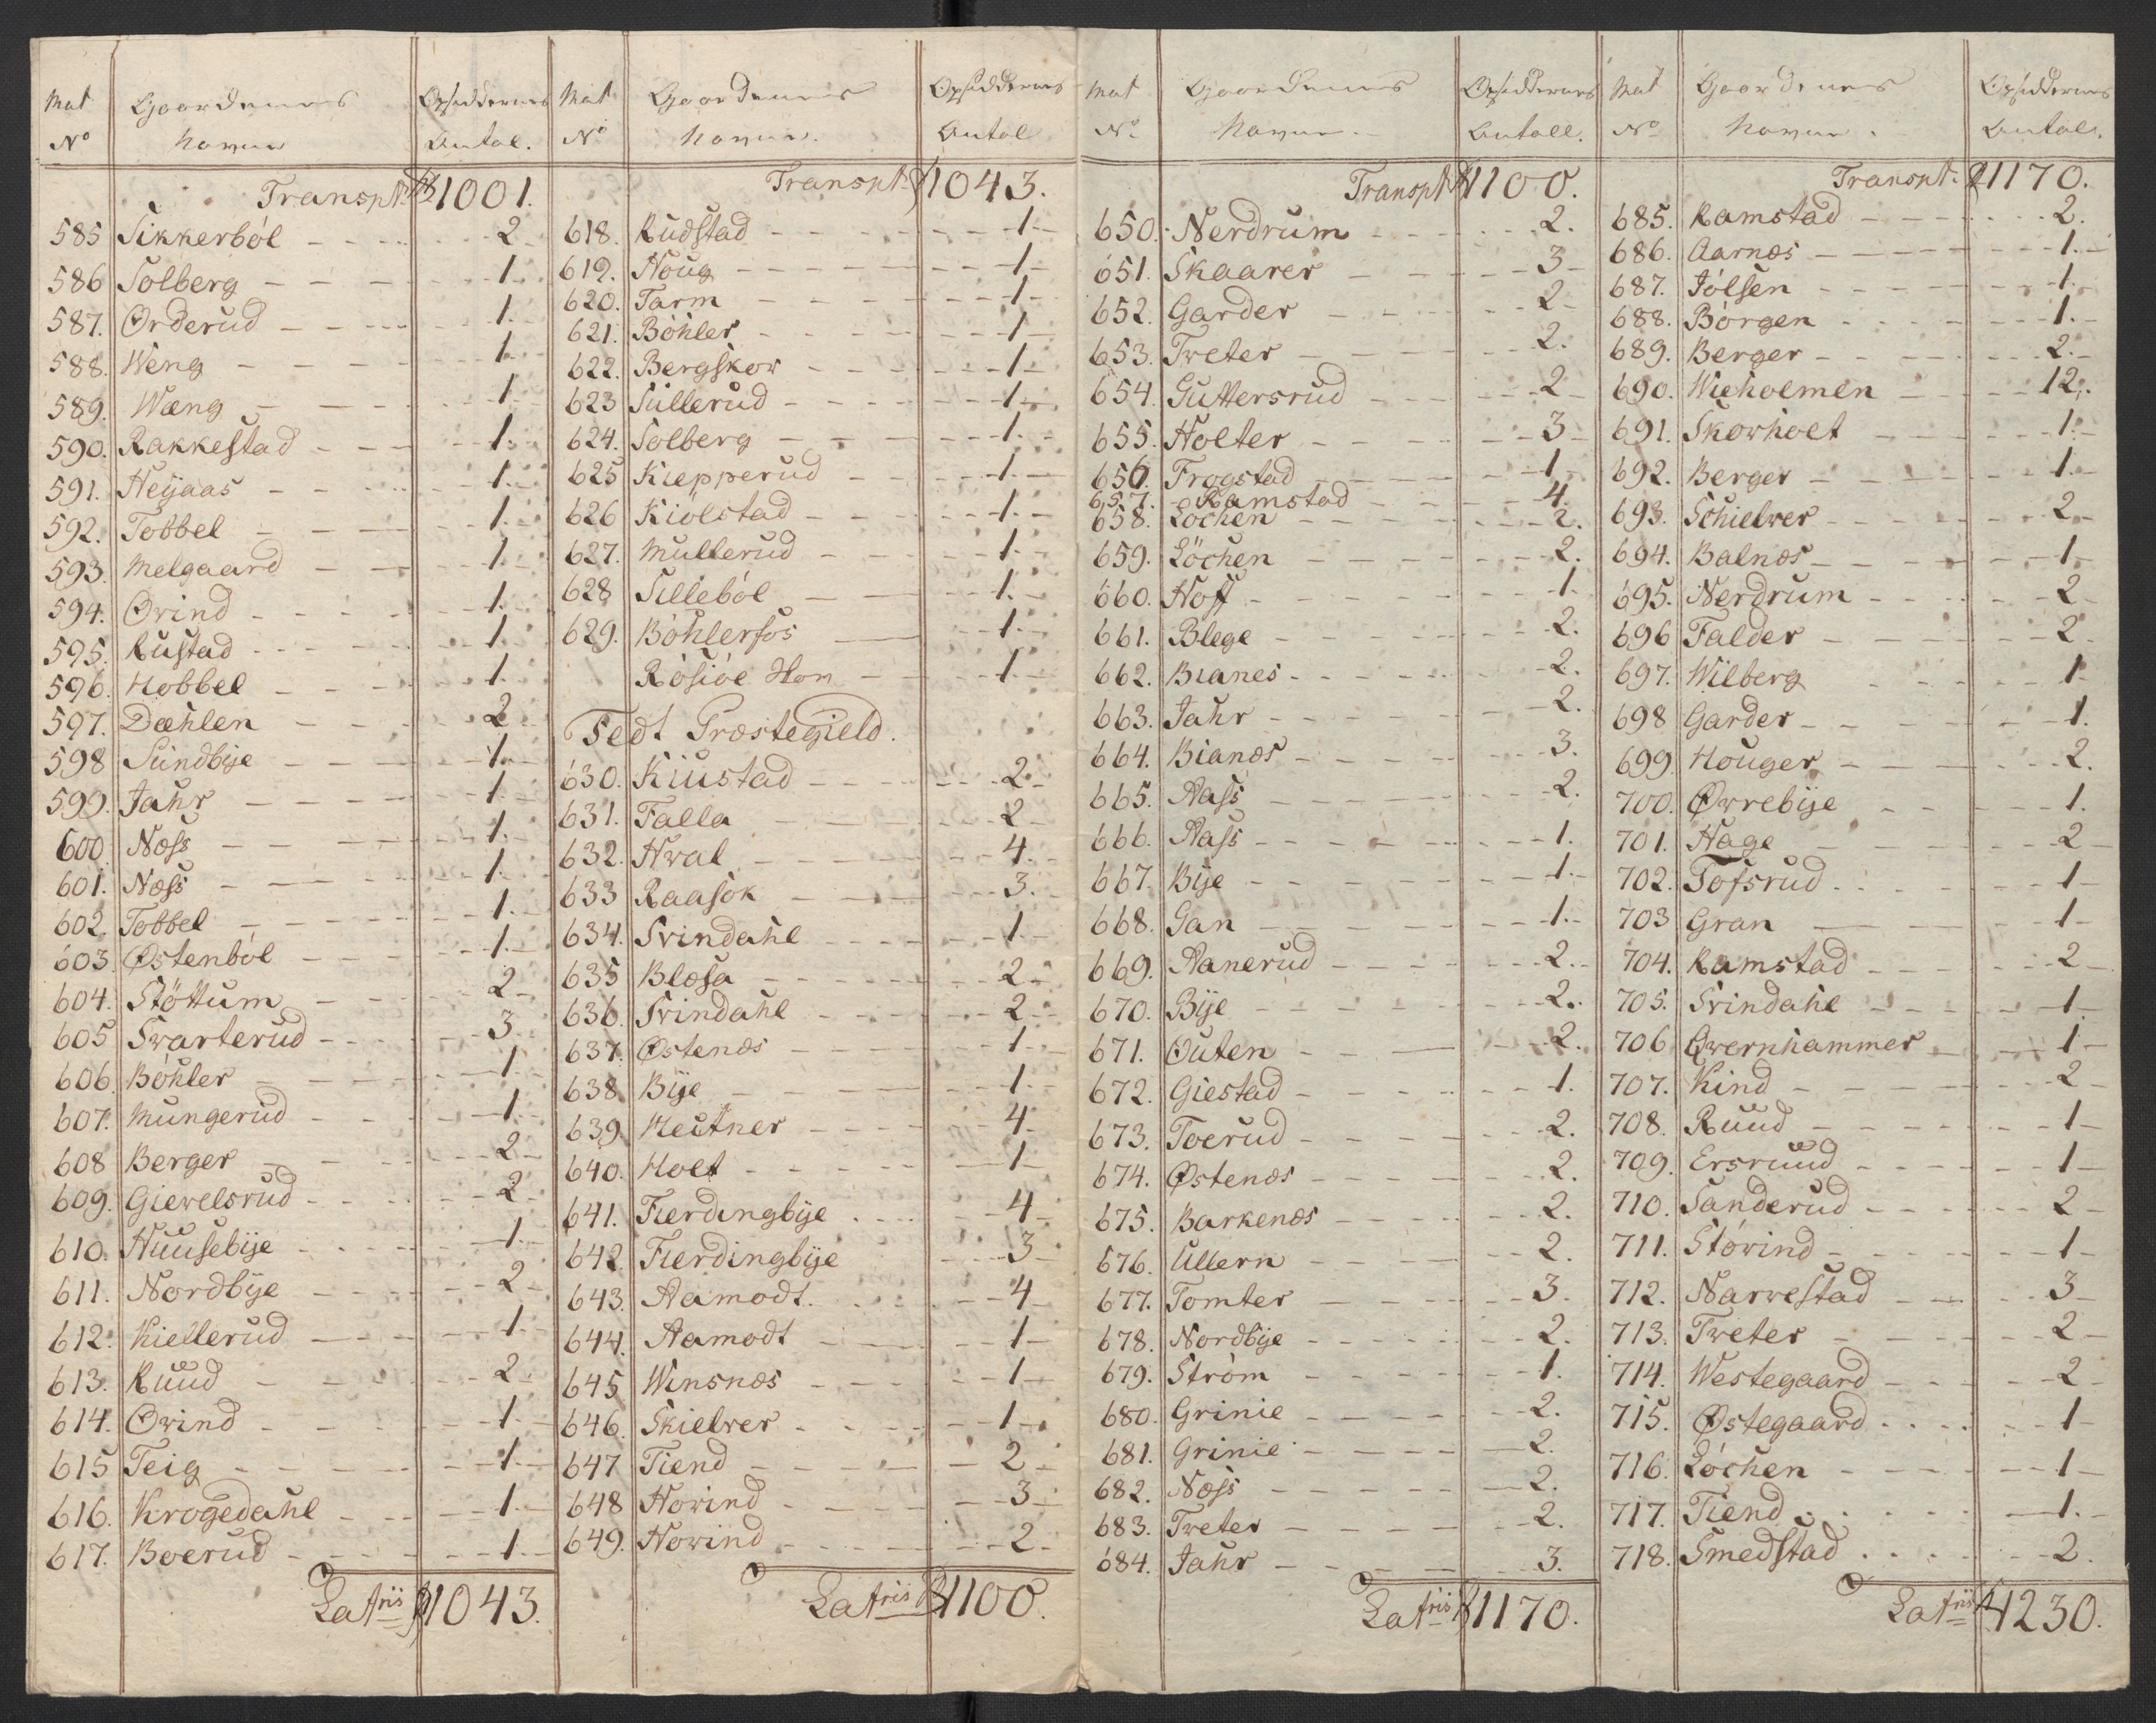 Mat Gaardenes Opsiddernes
No Navne Antal.
Transpt 1001.
585 Sikkerböl 2
586 Solberg 1.
587. Orderud 1.
588. Weng 1.
589. Wæng 1
590. Rakkestad 1.
591. Heyaas 1.
592. Tobbel 1.
593. Melgaard 1.
594. Øvind 1.
595. Rustad 1.
596. Hobbel 1.
597. Dæhlen 2
598 Sundbye 1.
599. Jahr 1.
600. Næss 1.
601. Næss 1.
602. Tobbel 1.
603. Østenböl 1.
604. Stöttum 2
605 Svarterud 3.
606 Böhler 1.
607. Mungerud 1.
608 Berger 2
609. Gievelsrud 2
610. Huusebye 1.
611. Nordbye 2
612. Kiellerud 1.
613. Ruud 2
614. Øvind 1.
615 Teig 1.
616. Krogedahl 1.
617. Boerud 1.
Latriis 1043.
Mat Gaardenes Opsiddernes
No Navne. Antal
Transpt. 1043.
618. Rudstad 1.
619. Houg 1.
620. Tarm 1.
621. Böhler 1
622. Bergskov 1.
623 Sullerud 1.
624. Solberg 1.
625 Kiepperud 1.
626 Kiölstad 1.
627. Mullerud 1.
628 Silleböl 1.
629. Böhlerfos 1.
Rösiöe Hon 1.
Fedt Præstegield.
630. Kiustad 2.
631. Falla 2
632. Hval 4.
633 Raasok 3.
634. Svindahl 1.
635 Blæsa 2.
636. Svindahl 2.
637. Østenæs 1.
638. Bye 1.
639. Heutner 4.
640. Holt 1
641. Fierdingbye 4
642. Fierdingbye 3
643. Aamodt. 4
644. Aamodt 1
645 Winsnæs 1
646. Skielver 1
647 Tiend 2
648 Hovind 3
649. Hovind 2.
Latriis 1100.
Mat Gaardenes Opsiddernes
No. Navne. Antall.
Transpt 1100.
650. Nerdrum 2.
651. Skaarer 3
652. Garder 2
653. Tveter 2.
654. Guttersrud 2
655. Holter 3
656. Frogstad 1
657. Ramstad 4.
658. Löchen 2.
659. Löchen 2.
660. Hoff 1.
661. Blege 2.
662. Bianes 2.
663. Jahr 2.
664. Bianæs 3.
665. Aass 2.
666. Aass 1.
667. Bye 1.
668. Gan 1.
669. Aanerud 2.
670. Bye 2.
671. Outen 2.
672. Giestad 1.
673. Toerud 2.
674. Østenæs 2.
675. Barkenæs 2.
676. Ullern 2.
677. Tomter 3.
678. Nordbye 2.
679. Ström 1.
680. Grinie 2.
681. Grinie 2.
682. Næss 2.
683. Tveter 2.
684. Jahr 3.
Latriis 1170.
Mat Gaardenes Opsiddernes
No Navne. Antal.
Transpt. 1170.
685. Ramstad 2.
686. Aarnæs 1.
687. Jölsen 1.
688. Börgen 1.
689. Berger 2.
690. Wieholmen 12.
691. Skovholt 1.
692. Berger 1.
693. Schielver 2
694. Balnæs 1
695. Nerdrum 2
696 Falder 2
697. Wilberg 1
698 Garder 1.
699 Houger 2.
700. Øvrebye 1.
701. Hage 2
702. Tofsrud 1
703 Gran 1
704. Ramstad 2
705. Svindahl 1
706 Qvernhammer 1
707. Kind 2
708. Ruud 1
709. Ersruud 1
710. Sanderud 2
711. Stövind 1
712. Narvestad 3
713. Tveter 2
714. Westegaard 2
715. Østegaard 1
716. Löchen 1
717. Tiend 1.
718. Smedstad 2.
Latriis 1230.